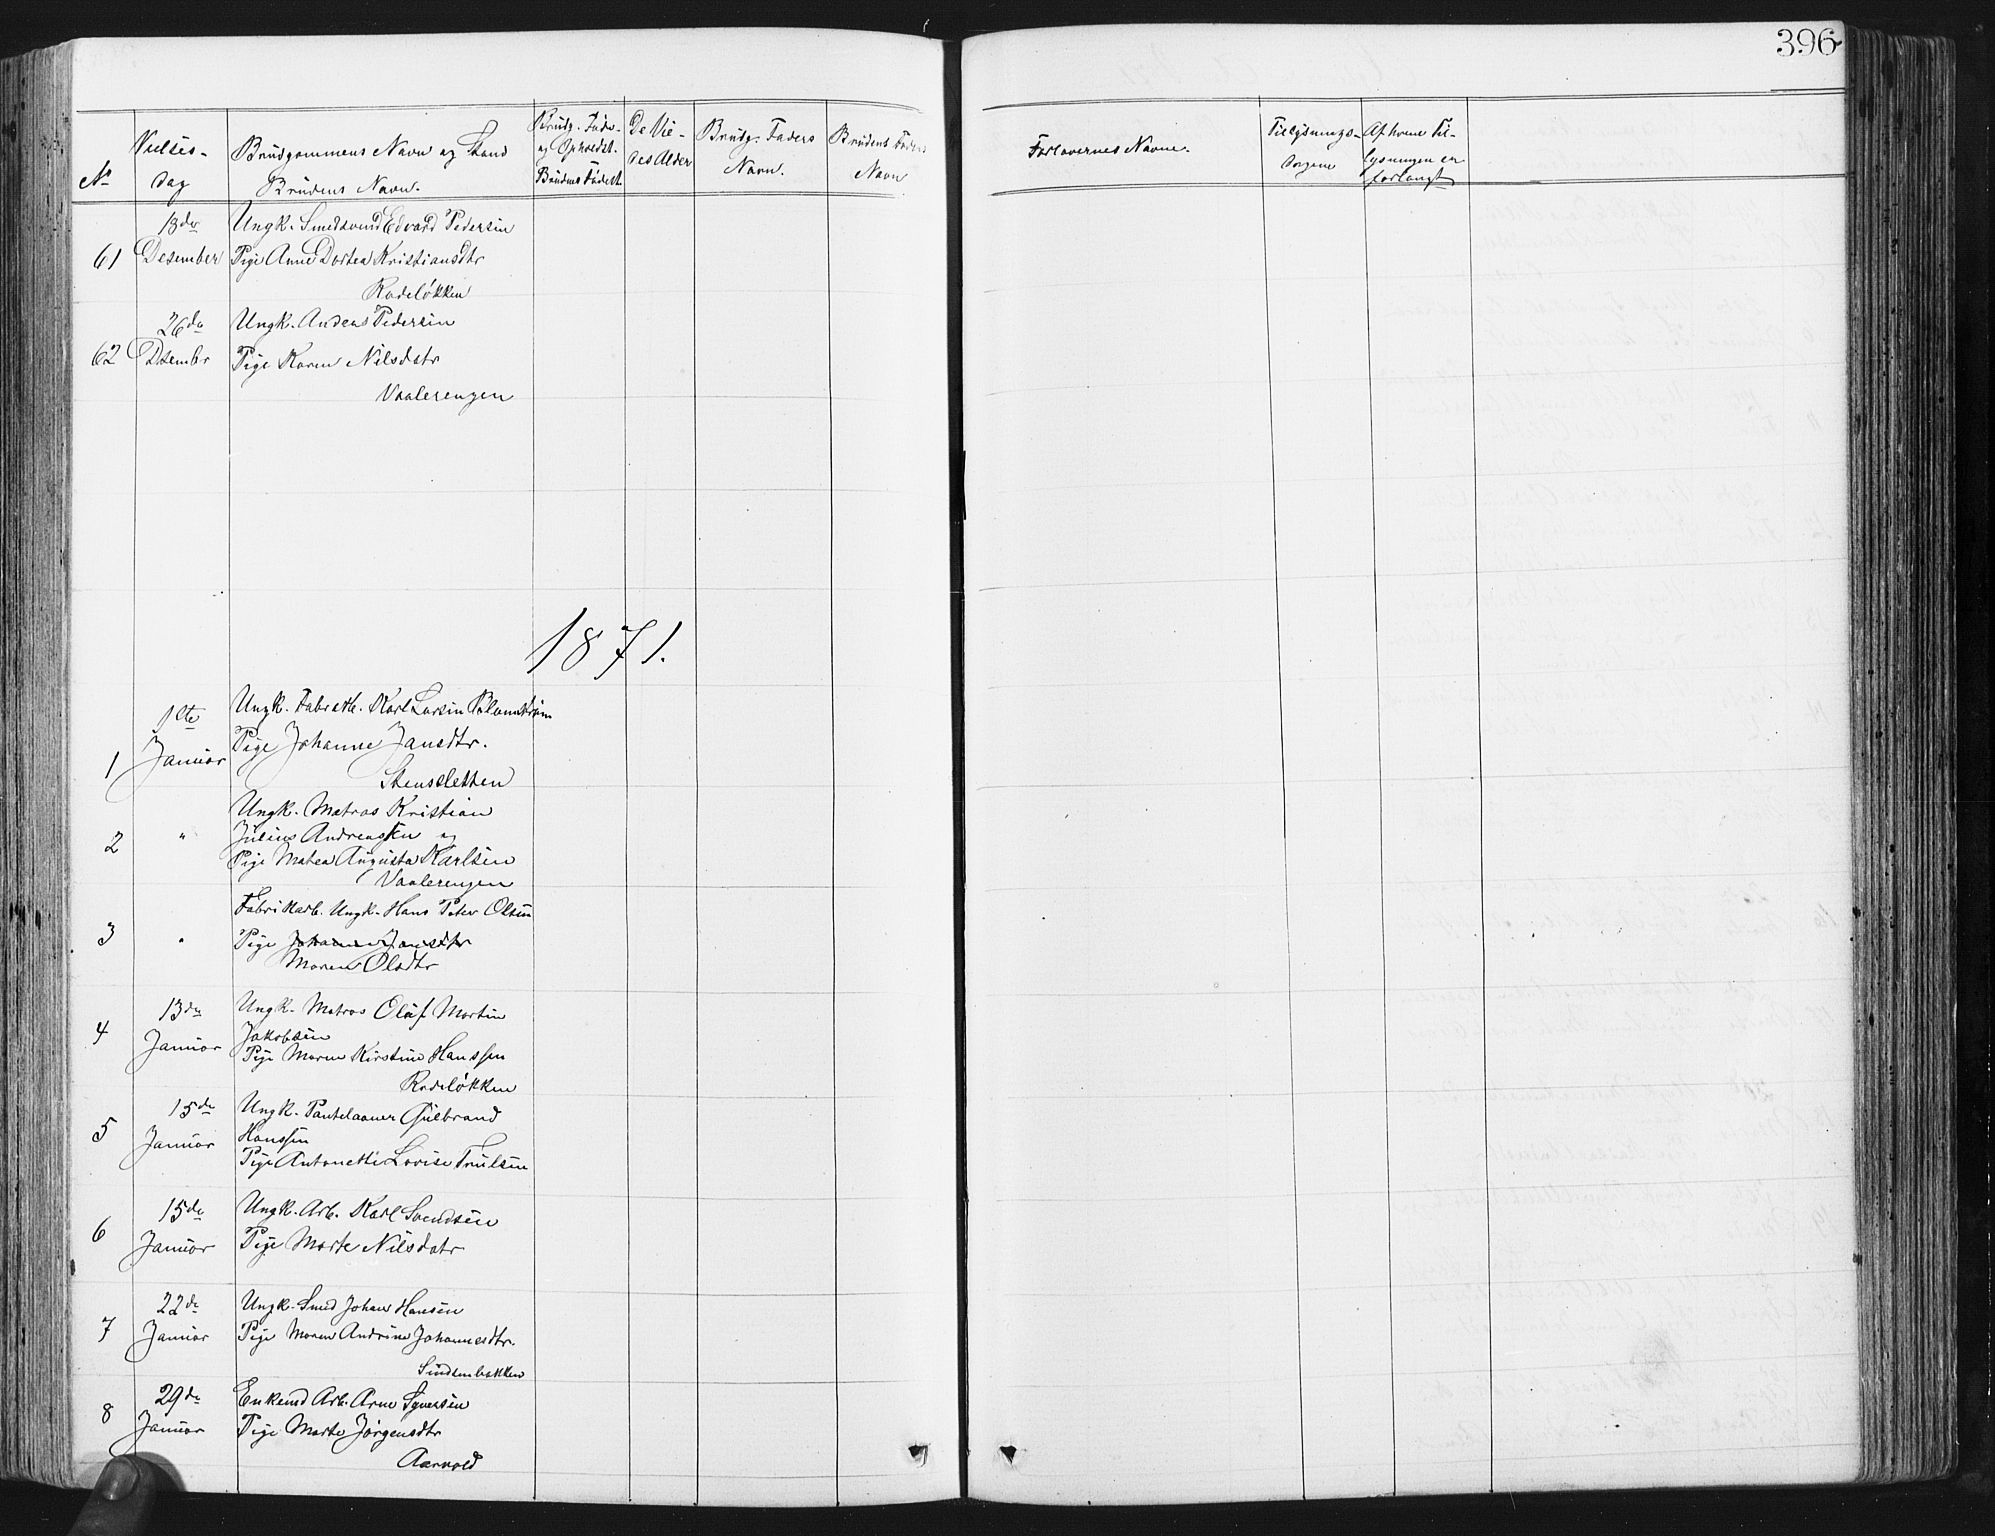 396
No
Vielses-
dag
Brudgommens Navn og Stand
Brudens Navn.
Brudg. Føde-
og Opholdst.
Brudens Fødest.
De Vie-
des Alder
Brudg. Faders
Navn.
Brudens Faders
Navn
Forlovernes Navne.
Tillysnings-
dagene
Af hvem Til-
lysningen er
forlangt
61
18de
Desember
Ungk. Smedsvend Edvard Pedersen
Pige Anne Dortea Kristiansdtr
Rodeløkken
62
26de
Dsembr
Ungk. Anders Pedersen
Pige Karen Nilsdatr
Vaalerengen
1871.
1
1ste
Januar
Ungk. Fabrarb. Karl Larsen Blomstrøm
Pige Johanne Jansdtr.
Stensletten
2
"
Ungk. Matros Kristian
Julius Andreassen og
Pige Matea Augusta Karlsen
Vaalerengen
3
"
Fabrikarb. Ungk. Hans Peter Olsen
Pige Johanne Jansdtr
Maren Olsdtr
4
13de
Januar
Ungk. Matros Oluf Martin
Jakobsen
Pige Maren Kirstine Hanssen
Rodeløkken
5
15de
Januar
Ungk. Pantelaaner Gulbrand
Hanssen
Pige Antonette Lovise Trulsen
6
15de
Januar
Ungk. Arb. Karl Svendsen
Pige Marte Nilsdatr
7
22de
Januar
Ungk. Smed Johan Hansen
Pige Maren Andrine Johannesdtr.
8
29de
Januar
Enkemd Arb. Arne Syversen
Pige Marte Jørgensdtr
Aarvold